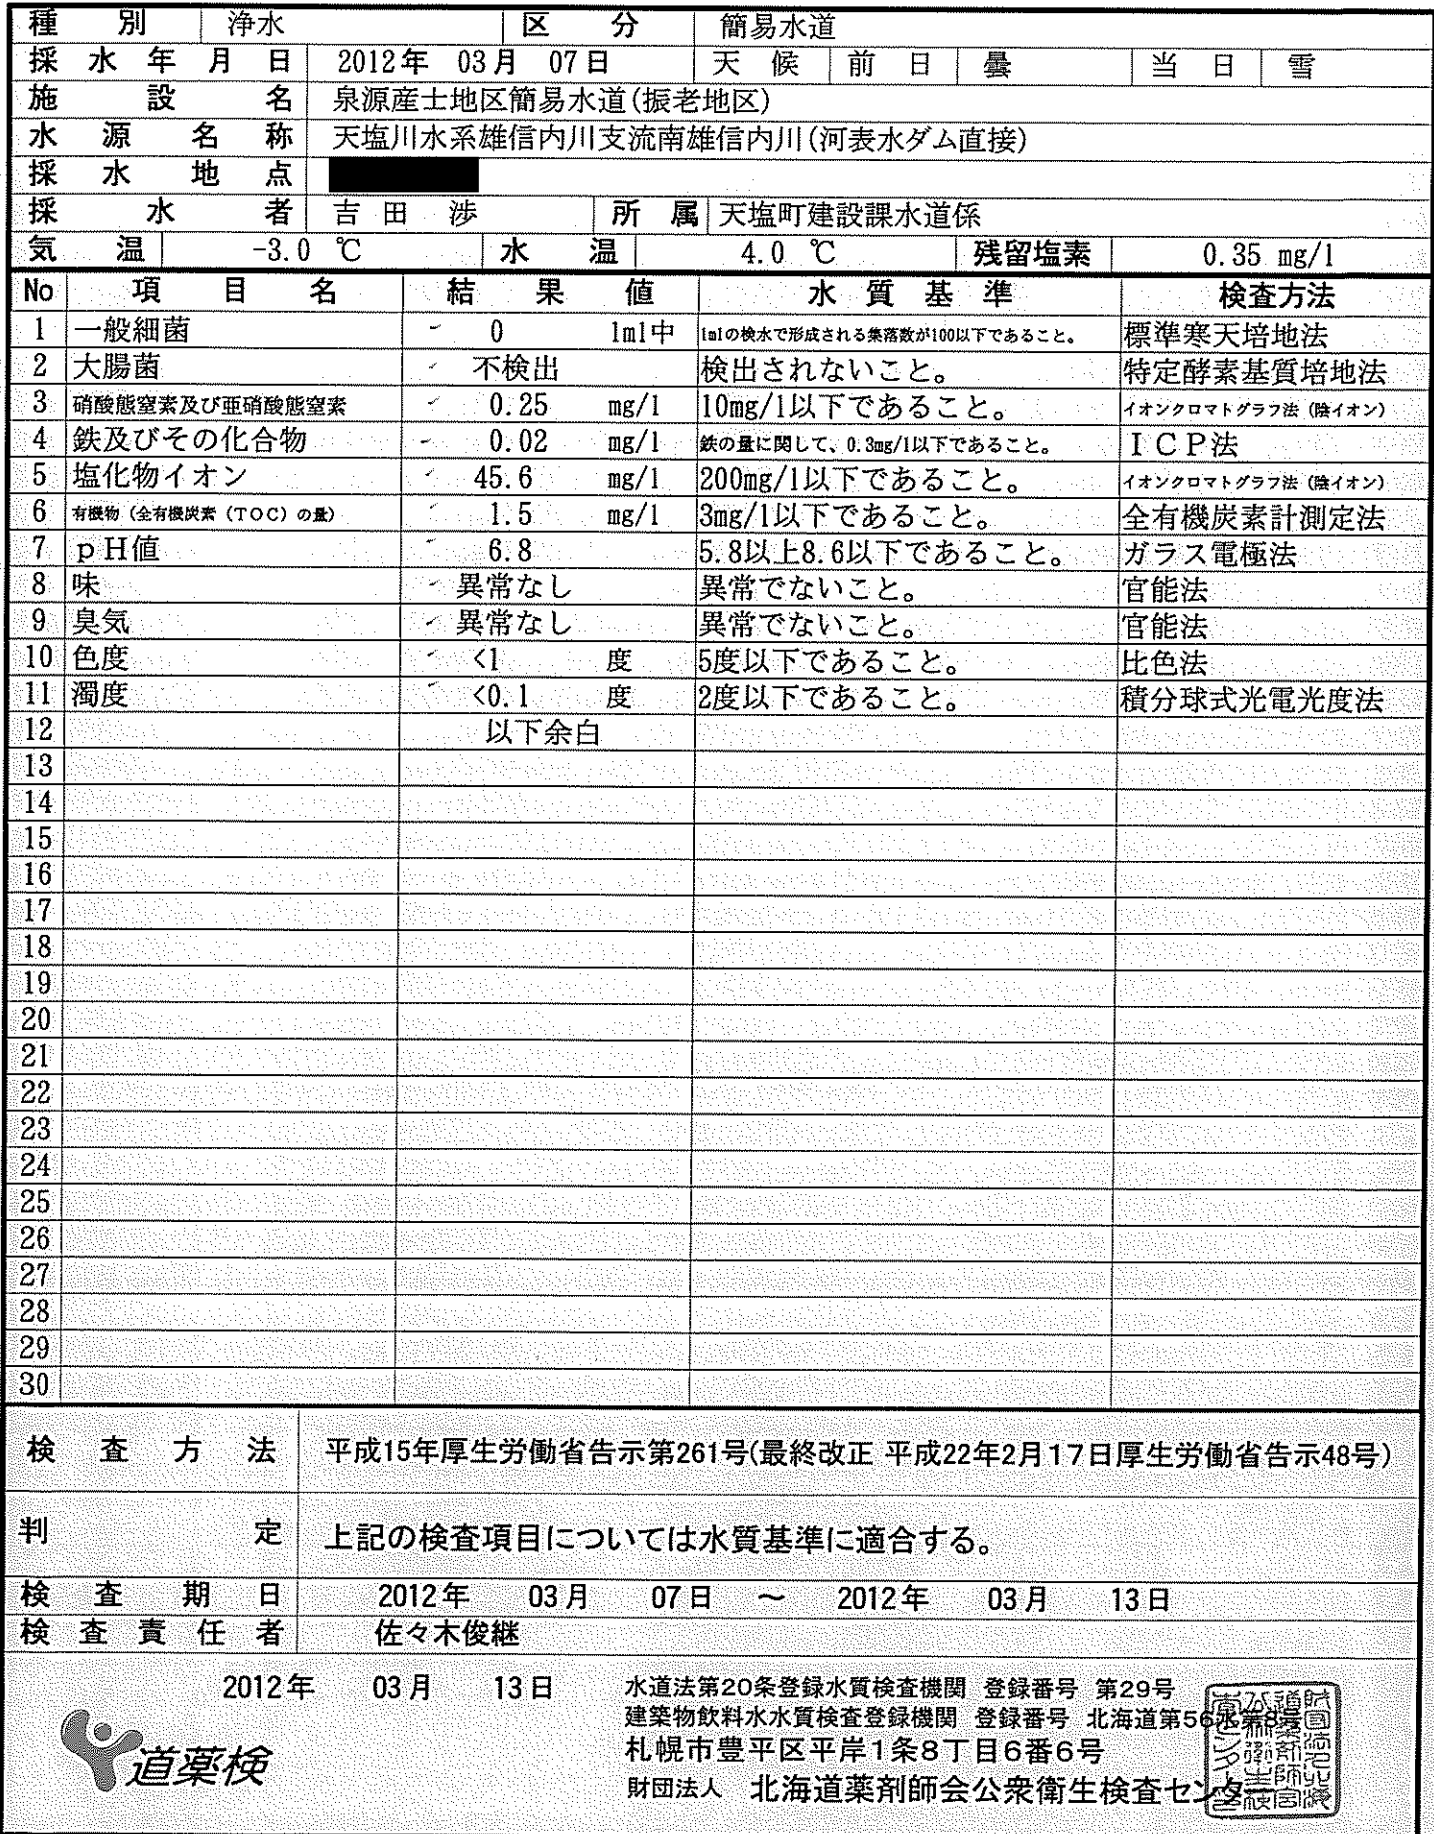 種別 浄水 区分 簡易水道
採水年月日 2012年 03月 07日 天候 前日 曇 当日 雪
施設名 泉源産士地区簡易水道(振老地区)
水源名称 天塩川水系雄信内川支流南雄信内川(河表水ダム直接)
採水地点
採水者 吉田 渉 所属 天塩町建設課水道係
気温 -3.0 ℃ 水温 4.0 ℃ 残留塩素 0.35 mg/l
No 項目名 結果値 水質基準 検査方法
1 一般細菌 0 1ml中 1mlの検水で形成される集落数が100以下であること。 標準寒天培地法
2 大腸菌 不検出 検出されないこと。 特定酵素基質培地法
3 硝酸態窒素及び亜硝酸態窒素 0.25 mg/l 10mg/l以下であること。 イオンクロマトグラフ法（陰イオン）
4 鉄及びその化合物 0.02 mg/l 鉄の量に関して、0.3mg/l以下であること。 ＩＣＰ法
5 塩化物イオン 45.6 mg/l 200mg/l以下であること。 イオンクロマトグラフ法（陰イオン）
6 有機物（全有機炭素（ＴＯＣ）の量） 1.5 mg/l 3mg/l以下であること。 全有機炭素計測定法
7 ｐＨ値 6.8 5.8以上8.6以下であること。 ガラス電極法
8 味 異常なし 異常でないこと。 官能法
9 臭気 異常なし 異常でないこと。 官能法
10 色度 <1 度 5度以下であること。 比色法
11 濁度 <0.1 度 2度以下であること。 積分球式光電光度法
12 以下余白
13
14
15
16
17
18
19
20
21
22
23
24
25
26
27
28
29
30
検査方法 平成15年厚生労働省告示第261号(最終改正 平成22年2月17日厚生労働省告示48号)
判定 上記の検査項目については水質基準に適合する。
検査期日 2012年 03月 07日 ～ 2012年 03月 13日
検査責任者 佐々木俊継
2012年 03月 13日
水道法第20条登録水質検査機関 登録番号 第29号
建築物飲料水水質検査登録機関 登録番号 北海道第56水第8号
札幌市豊平区平岸1条8丁目6番6号
財団法人 北海道薬剤師会公衆衛生検査センター
道薬検